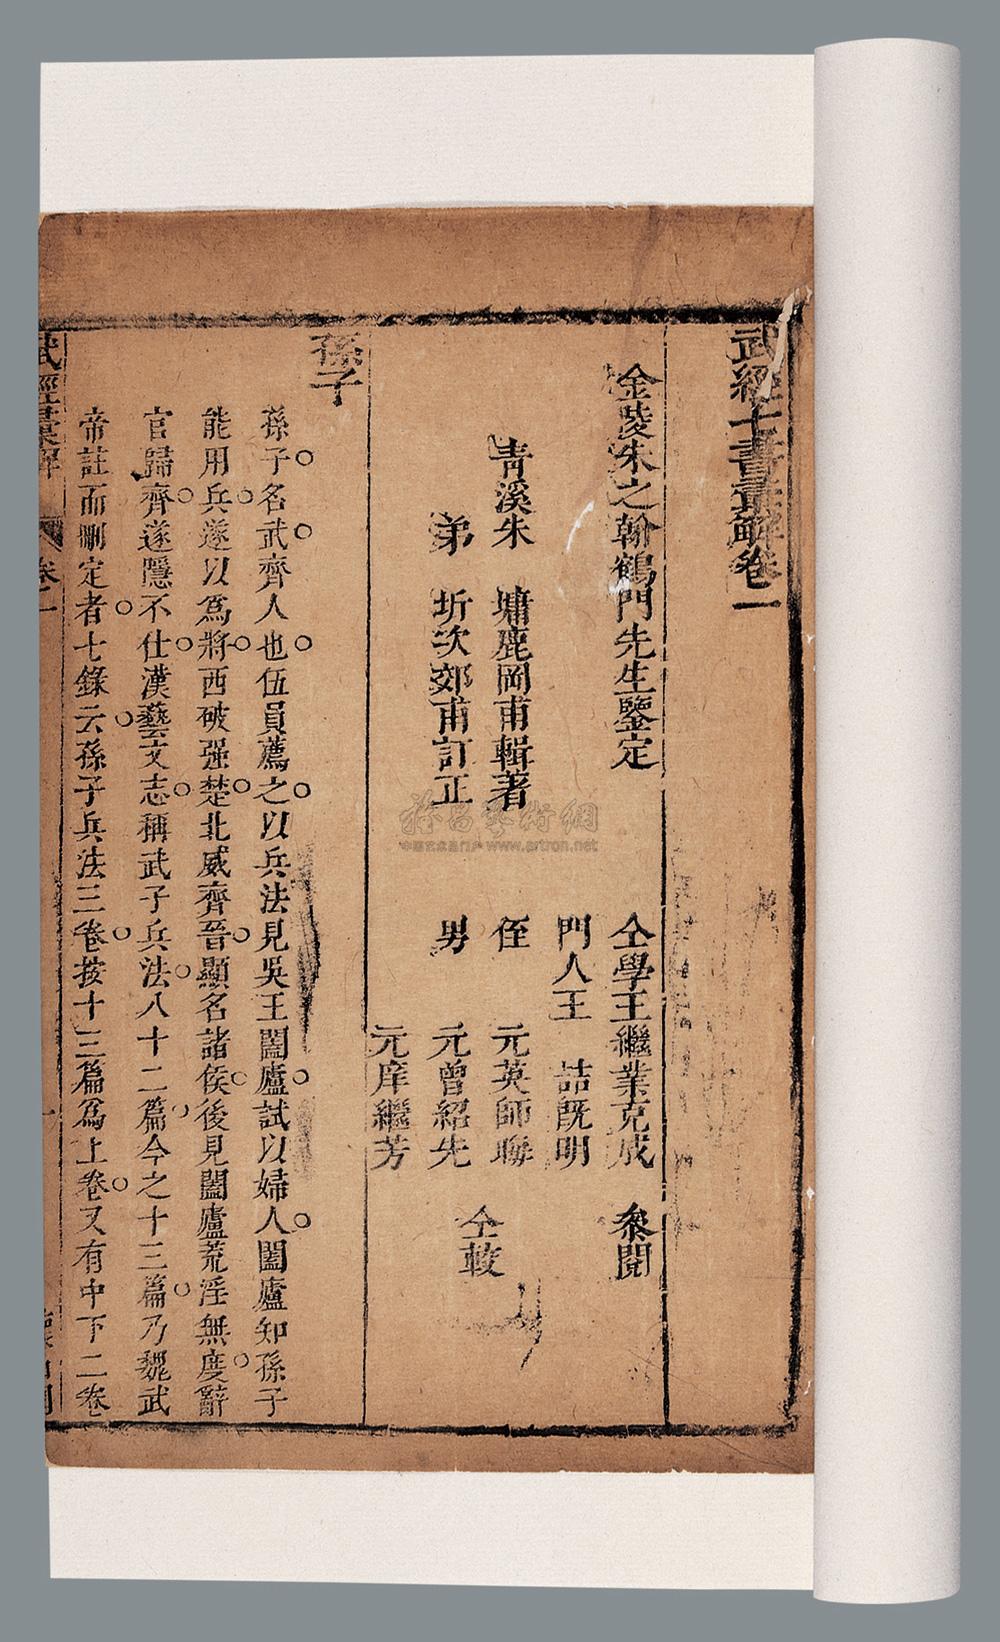 武經七書彙解卷一
金陵朱之翰鶴門先生鑒定
仝學王繼業克成 叅閱
門人王 喆既明
青溪朱 墉鹿岡甫輯著
侄 元英師晦
弟 圻次郊甫訂正
男 元曾紹先
元庠繼芳
仝較
孫子
孫子名武齊人也伍員薦之以兵法見吳王闔廬試以婦人闔廬知孫子
能用兵遂以為將西破强楚北威齊晉顯名諸侯後見闔廬荒淫無度辭
官歸齊遂隱不仕漢藝文志稱武子兵法八十二篇今之十三篇乃魏武
帝註而刪定者七錄云孫子兵法三卷按十三篇為上卷又有中下二卷
武經彙解 卷一 一
雅昌藝術網
中国艺术品门户 www.artron.net